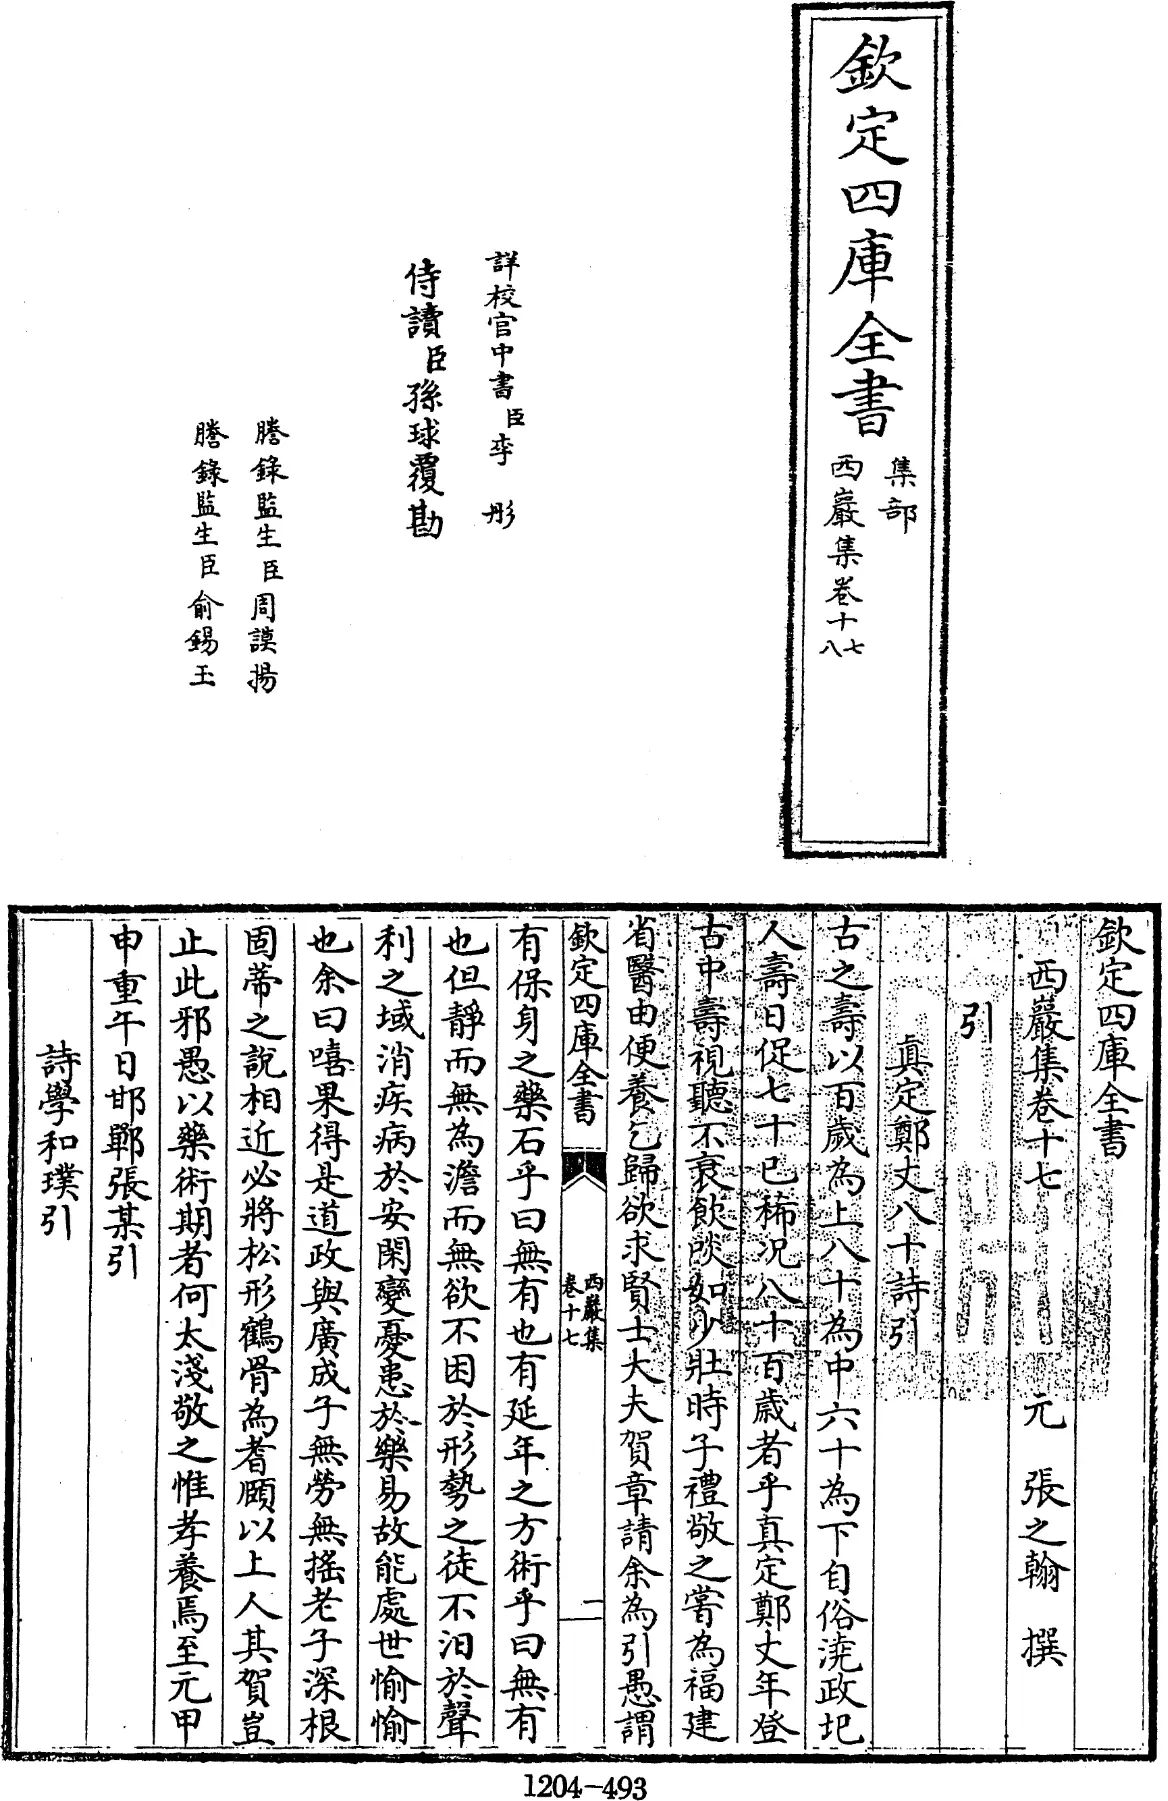 欽定四庫全書
集部
西巖集卷十七
八
詳校官中書臣李彤
侍讀臣孫球覆勘
謄錄監生臣周謨揚
謄錄監生臣俞錫玉
欽定四庫全書
西巖集卷十七
元 張之翰 撰
引
真定鄭丈八十詩引
古之壽以百歲為上八十為中六十為下自俗澆政圮
人壽日促七十已稀况八十百歲者乎真定鄭丈年登
古中壽視聽不衰飲啖如少壯時子禮敬之嘗為福建
省醫由便養乞歸欲求賢士大夫賀章請余為引愚謂
欽定四庫全書
西巖集
卷十七
一
有保身之藥石乎曰無有也有延年之方術乎曰無有
也但靜而無為澹而無欲不困於形勢之徒不汨於聲
利之域消疾病於安閑變憂患於樂易故能處世愉愉
也余曰嘻果得是道政與廣成子無勞無搖老子深根
固蔕之說相近必將松形鶴骨為耆頤以上人其賀豈
止此邪愚以藥術期者何太淺敬之惟孝養焉至元甲
申重午日邯鄲張某引
詩學和璞引
1204-493